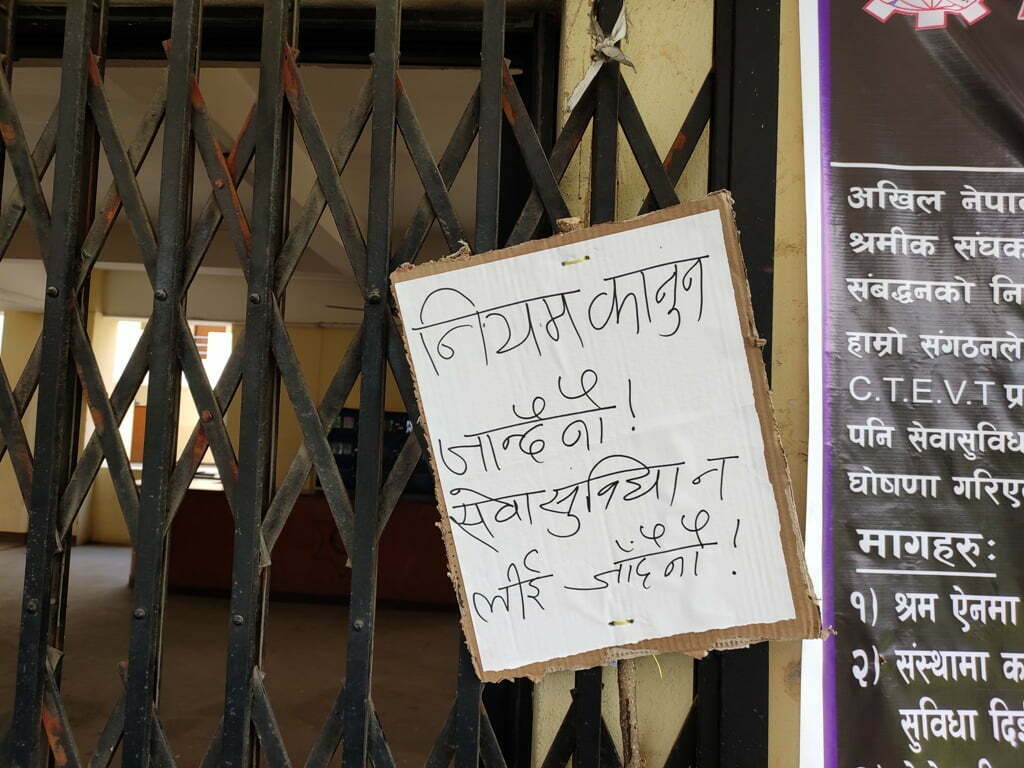 नियम कानुन
जान्दैनौ!
सेवासुविधा न
लीई जाँदैनौ!
अखिल नेपाल
श्रमीक संघक
संबद्धनको नि
हाम्रो संगठनले
C.T.E.V.T प्र
पनि सेवासुविधा
घोषणा गरिए
मागहरु:
१) श्रम ऐनमा
२) संस्थामा क
सुविधा दिइ